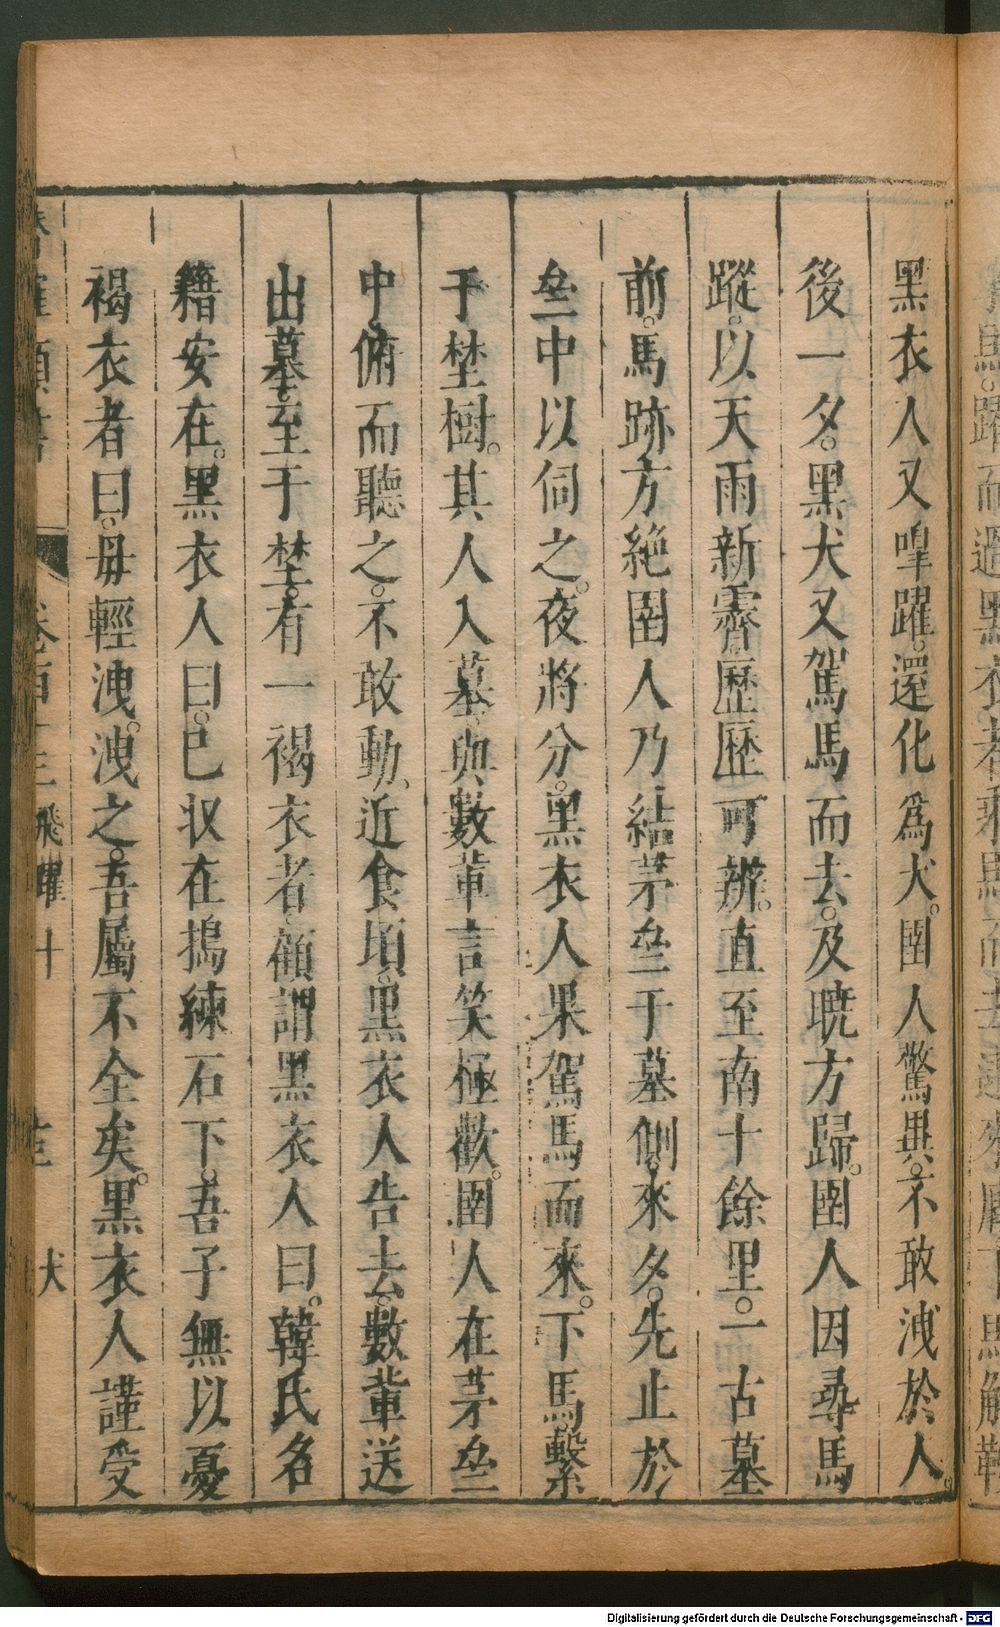 黑衣人又嘷躍。還化爲犬。圉人驚異。不敢洩於人
後一夕。黑犬又駕馬而去。及曉方歸。圉人因尋馬
蹤。以天雨新霽。歷歷可辨。直至南十餘里。一古墓
前。馬跡方絶。圉人乃結茅㘴于墓側。來夕。先止於
㘴中以伺之。夜將分。黑衣人果駕馬而來。下馬。繫
于埜樹。其人入墓。與數輩言笑極歡。圉人在茅㘴
中。俯而聽之。不敢動。近食頃。黑衣人告去。數輩送
出墓。至于埜。有一褐衣者。顧謂黑衣人曰。韓氏名
籍安在。黑衣人曰。已収在搗練石下。吾子無以憂
褐衣者曰。毋輕洩。洩之。吾屬不全矣。黑衣人謹受
卷百十三 飛躍十 犬
Digitalisierung gefördert durch die Deutsche Forschungsgemeinschaft - DFG